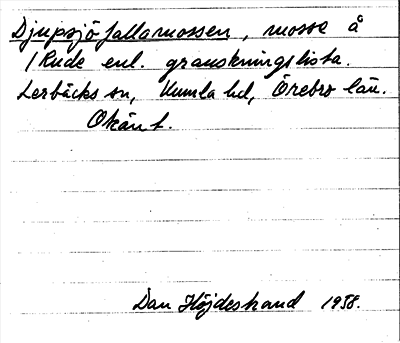 Djupsjöfallamossen, mosse å
1 Rude enl. granskningslista.
Lerbäcks sn, Kumla hd, Örebro län.
Okänt.
Dan Höjdestrand 1958.